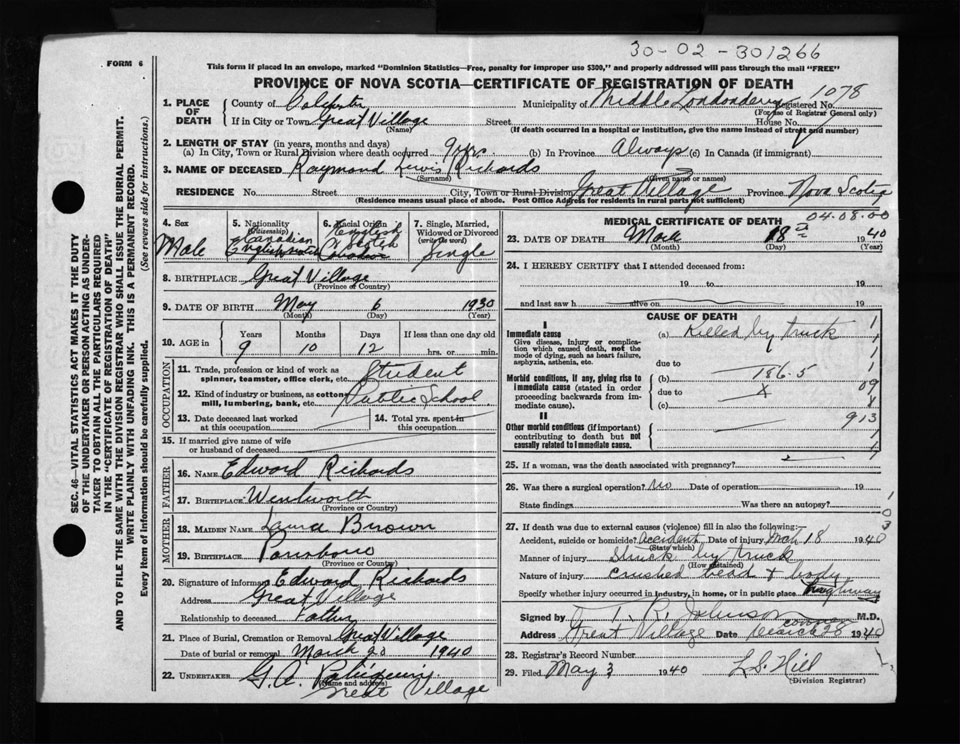 30-02-301266
FORM 6
This form if placed in an envelope, marked "Dominion Statistics—Free, penalty for improper use $300," and properly addressed will pass through the mail "FREE"
PROVINCE OF NOVA SCOTIA—CERTIFICATE OF REGISTRATION OF DEATH
1078
1. PLACE OF DEATH County of Colchester Municipality of Middle Londonderry Registered No.
(For use of Registrar General only)
If in City or Town Great Village Street House No.
(Name) (If death occurred in a hospital or institution, give the name instead of street and number)
2. LENGTH OF STAY (in years, months and days)
(a) In City, Town or Rural Division where death occurred 9 yrs. (b) In Province Always (c) In Canada (if immigrant)
3. NAME OF DECEASED Raymond Lewis Richards
(Surname) (Given name or names)
RESIDENCE No. Street City, Town or Rural Division Great Village Province Nova Scotia
(Residence means usual place of abode. Post Office Address for residents in rural parts not sufficient)
4. Sex Male
5. Nationality (Citizenship) Canadian
6. Racial Origin English Scotch
7. Single, Married, Widowed or Divorced (write the word) Single
8. BIRTHPLACE Great Village
(Province or Country)
9. DATE OF BIRTH May 6 1930
(Month) (Day) (Year)
10. AGE in Years Months Days If less than one day old
9 10 12 hrs. or min.
OCCUPATION
11. Trade, profession or kind of work as spinner, teamster, office clerk, etc. Student
12. Kind of industry or business, as cotton mill, lumbering, bank, etc. Public School
13. Date deceased last worked at this occupation
14. Total yrs. spent in this occupation
15. If married give name of wife or husband of deceased
FATHER
16. NAME Edward Richards
17. BIRTHPLACE Wentworth
(Province or Country)
MOTHER
18. MAIDEN NAME Laura Brown
19. BIRTHPLACE Parrsboro
(Province or Country)
20. Signature of informant Edward Richards
Address Great Village
Relationship to deceased Father
21. Place of Burial, Cremation or Removal Great Village
Date of burial or removal March 20 1940
22. UNDERTAKER G. A.
(Name and address)
Great Village
MEDICAL CERTIFICATE OF DEATH
04.08.00
23. DATE OF DEATH March 18th 1940
(Month) (Day) (Year)
24. I HEREBY CERTIFY that I attended deceased from:
19 to 19
and last saw h alive on 19
CAUSE OF DEATH
I
Immediate cause (a) Killed by truck
Give disease, injury or complication which caused death, not the mode of dying, such as heart failure, asphyxia, asthenia, etc.
due to
Morbid conditions, if any, giving rise to immediate cause (stated in order proceeding backwards from immediate cause).
(b) 186.5
due to X
(c)
09
II
Other morbid conditions (if important) contributing to death but not causally related to immediate cause.
913
25. If a woman, was the death associated with pregnancy?
26. Was there a surgical operation? No Date of operation 19
State findings Was there an autopsy?
27. If death was due to external causes (violence) fill in also the following:
Accident, suicide or homicide? Accident Date of injury Mch 18 1940
(State which)
Manner of injury Struck by truck
(How sustained)
Nature of injury Crushed head & body
Specify whether injury occurred in industry, in home, or in public place Highway
Signed by T. R. Johnson coroner M.D.
Address Great Village Date March 28 1940
28. Registrar's Record Number
29. Filed May 3 1940 L.S. Hill
(Division Registrar)
SEC. 46—VITAL STATISTICS ACT MAKES IT THE DUTY
OF THE UNDERTAKER OR PERSON ACTING AS UNDER-
TAKER TO OBTAIN ALL THE PARTICULARS REQUIRED
IN THE "CERTIFICATE OF REGISTRATION OF DEATH"
AND TO FILE THE SAME WITH THE DIVISION REGISTRAR WHO SHALL ISSUE THE BURIAL PERMIT.
WRITE PLAINLY WITH UNFADING INK. THIS IS A PERMANENT RECORD.
Every item of information should be carefully supplied. (See reverse side for instructions.)